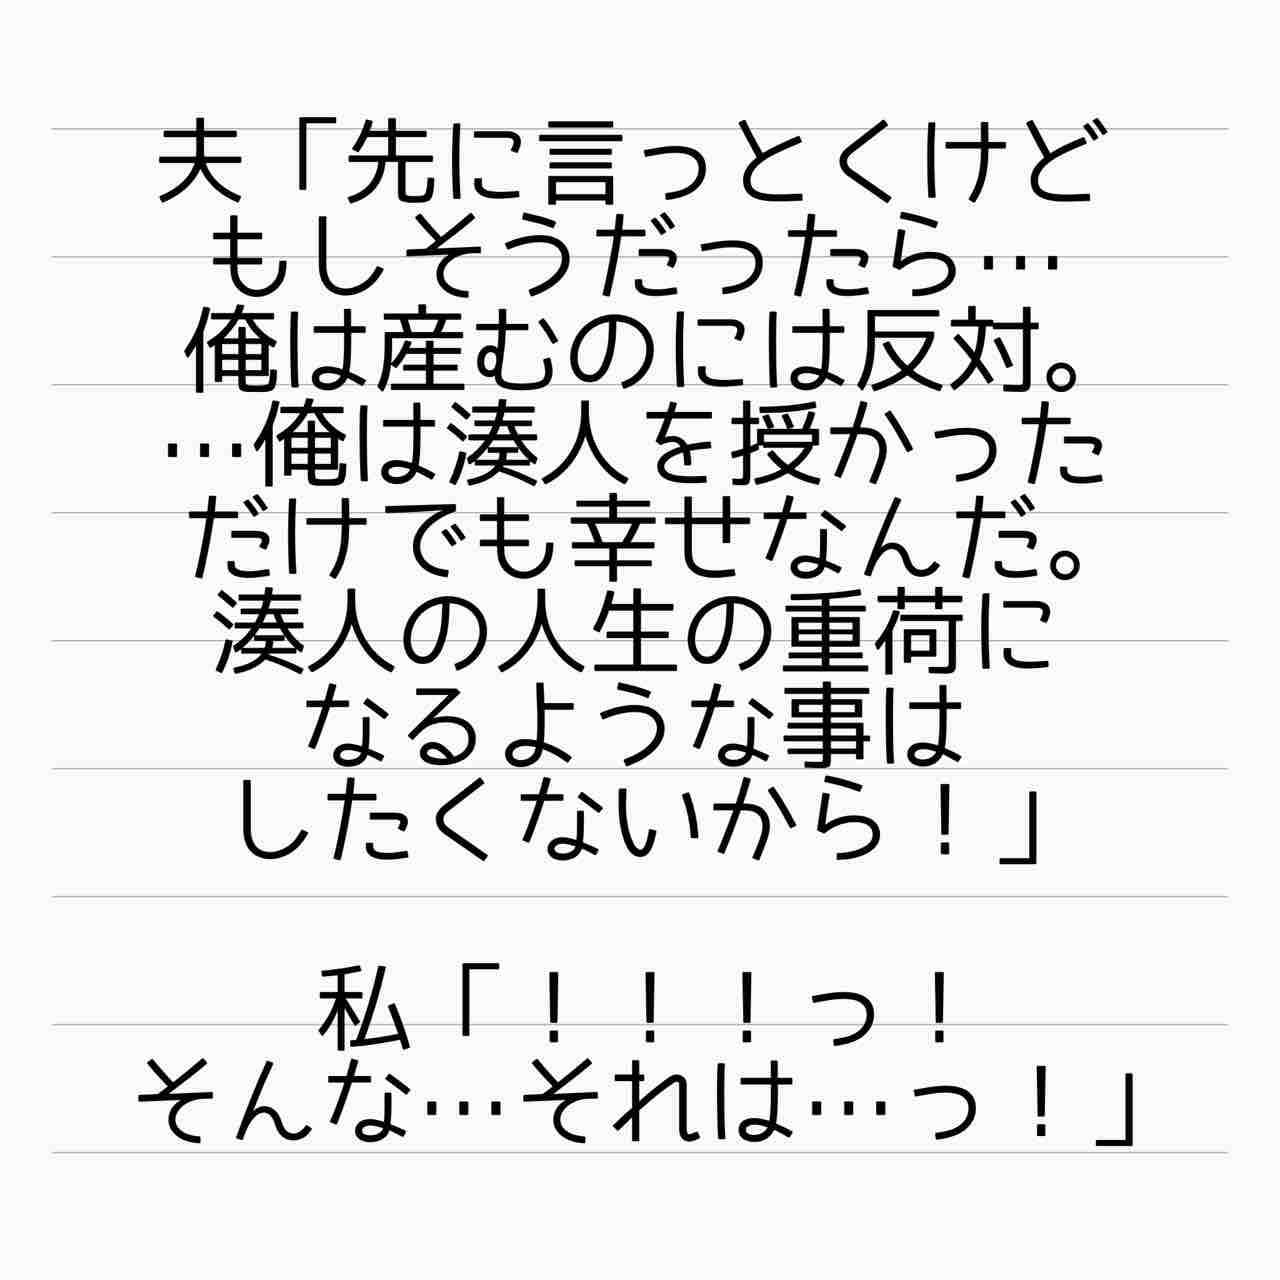 夫「先に言っとくけど
もしそうだったら…
俺は産むのには反対。
…俺は湊人を授かった
だけでも幸せなんだ。
湊人の人生の重荷に
なるような事は
したくないから！」
私「！！！っ！
そんな…それは…っ！」